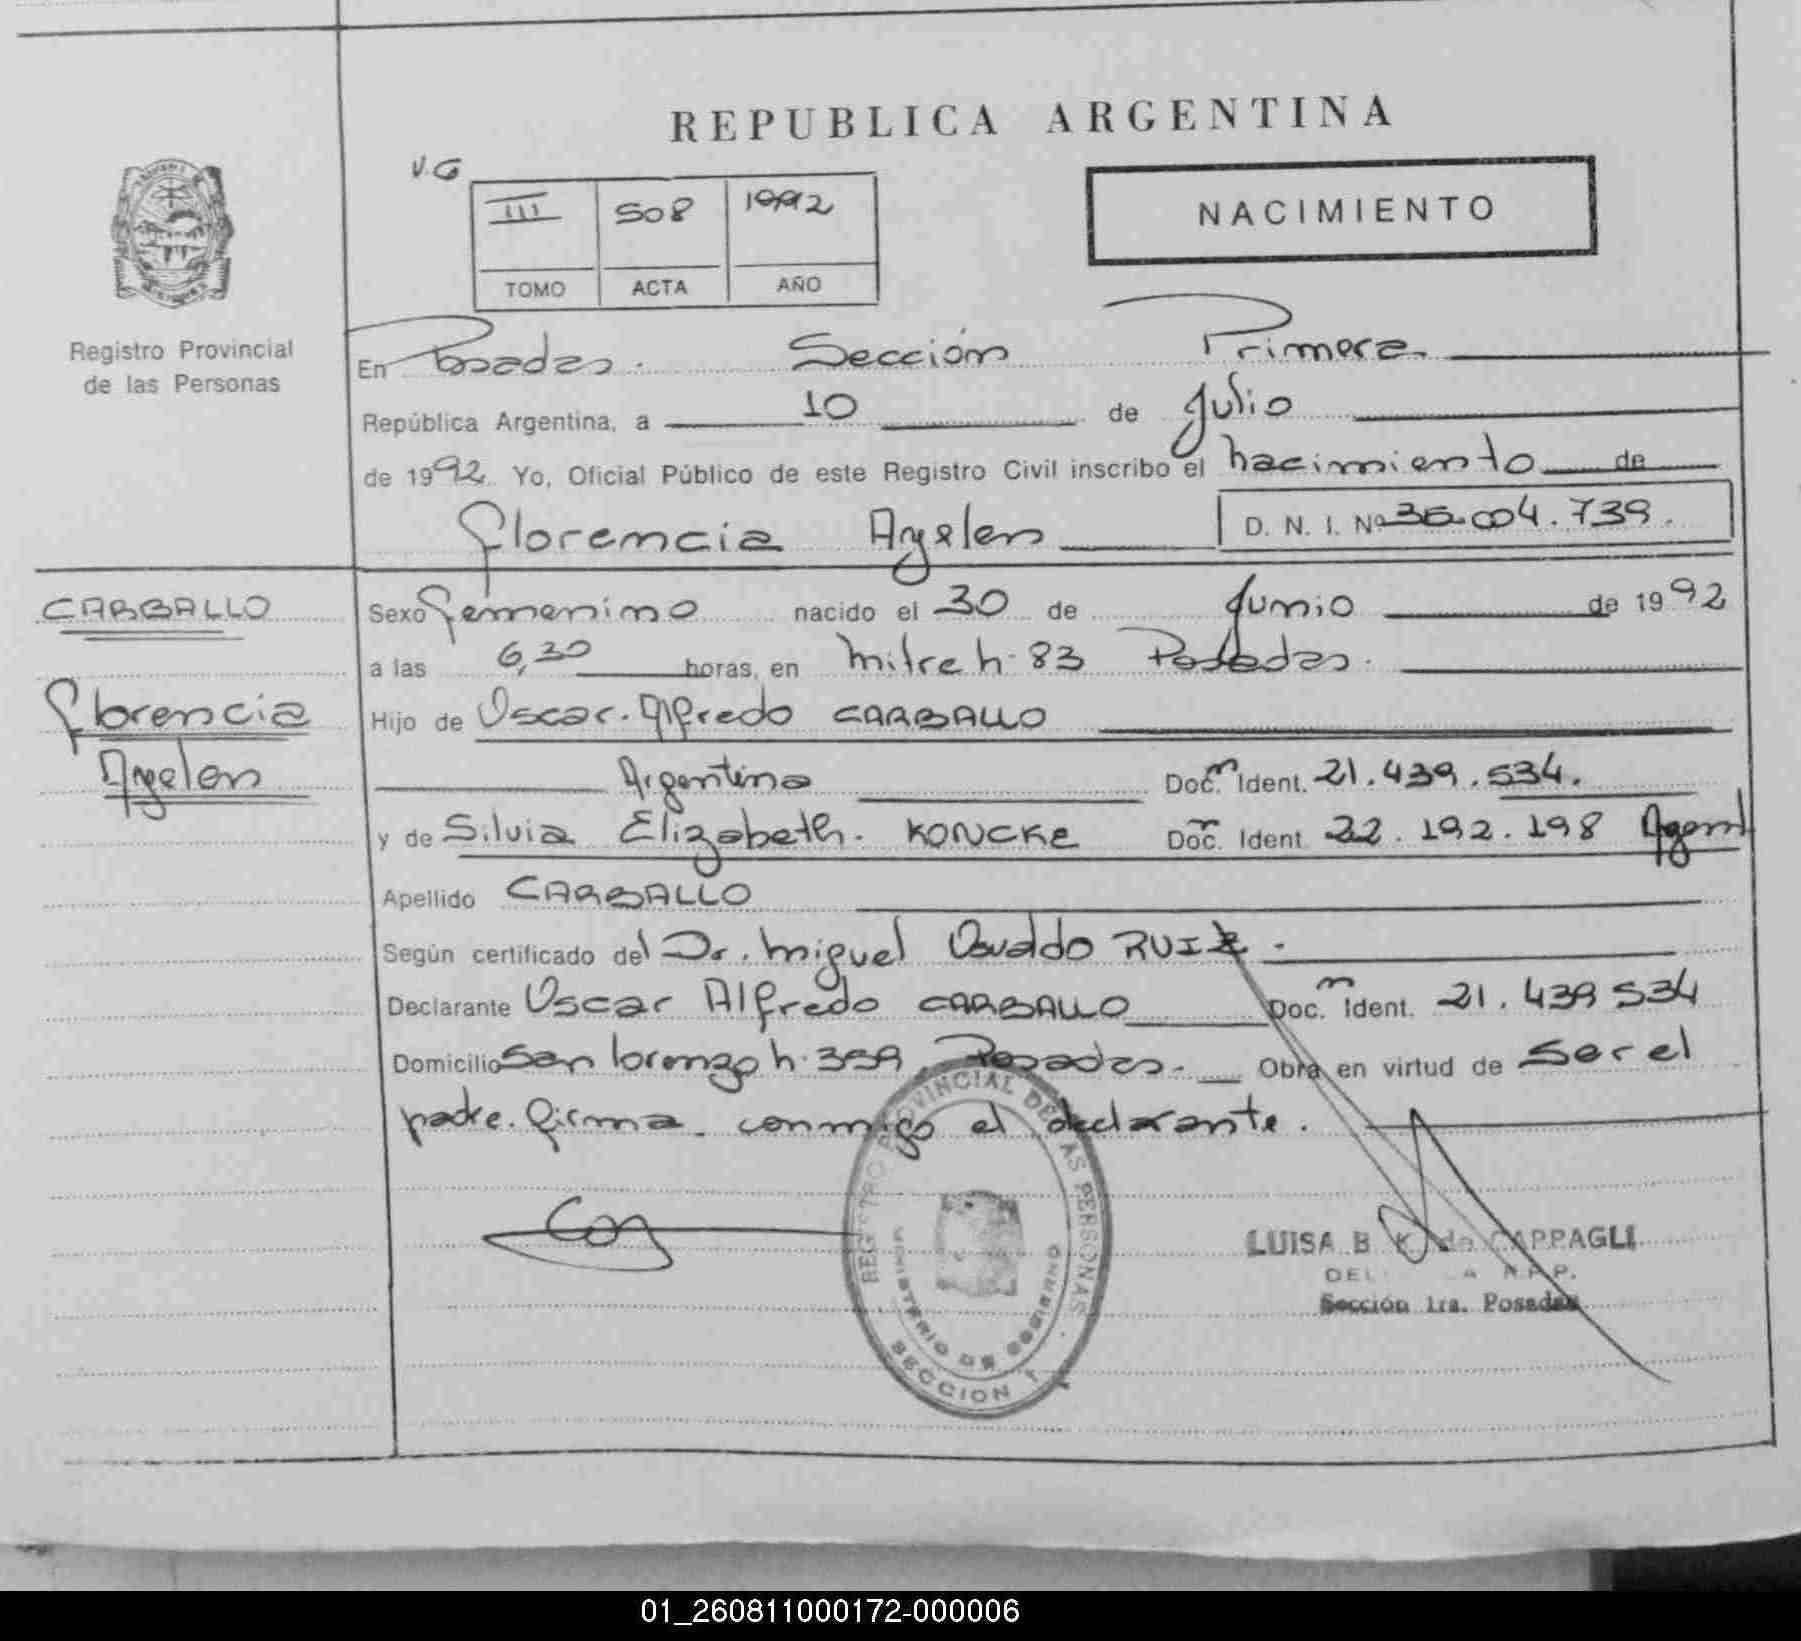 REPUBLICA ARGENTINA
V.G
III 508 1992
TOMO ACTA AÑO
NACIMIENTO
Registro Provincial
de las Personas
En Posadas. Sección Primera.
República Argentina, a 10 de Julio
de 1992 Yo, Oficial Público de este Registro Civil inscribo el nacimiento de
Florencia Ayelen D. N. I. Nº 36.004.739.
CARBALLO
Florencia
Ayelen
Sexo Femenino nacido el 30 de Junio de 1992
a las 6,30 horas, en Mitre h. 83 Posadas.
Hijo de Oscar. Alfredo CARBALLO
Argentino Doc. Ident. 21.439.534.
y de Silvia Elizabeth. KONCKE Doc. Ident. 22.192.198 Argent
Apellido CARBALLO
Según certificado del Dr. Miguel Osvaldo RUIZ.
Declarante Oscar Alfredo CARBALLO Doc. Ident. 21.439 534
Domicilio San lorenzo h. 359, Posadas. Obra en virtud de ser el
padre. firma conmigo el declarante.
REGISTRO PROVINCIAL DE LAS PERSONAS
MINISTERIO DE GOBIERNO
SECCION 1
LUISA B K de CAPPAGLI
R.P.P.
Sección 1ra. Posadas
01_260811000172-000006